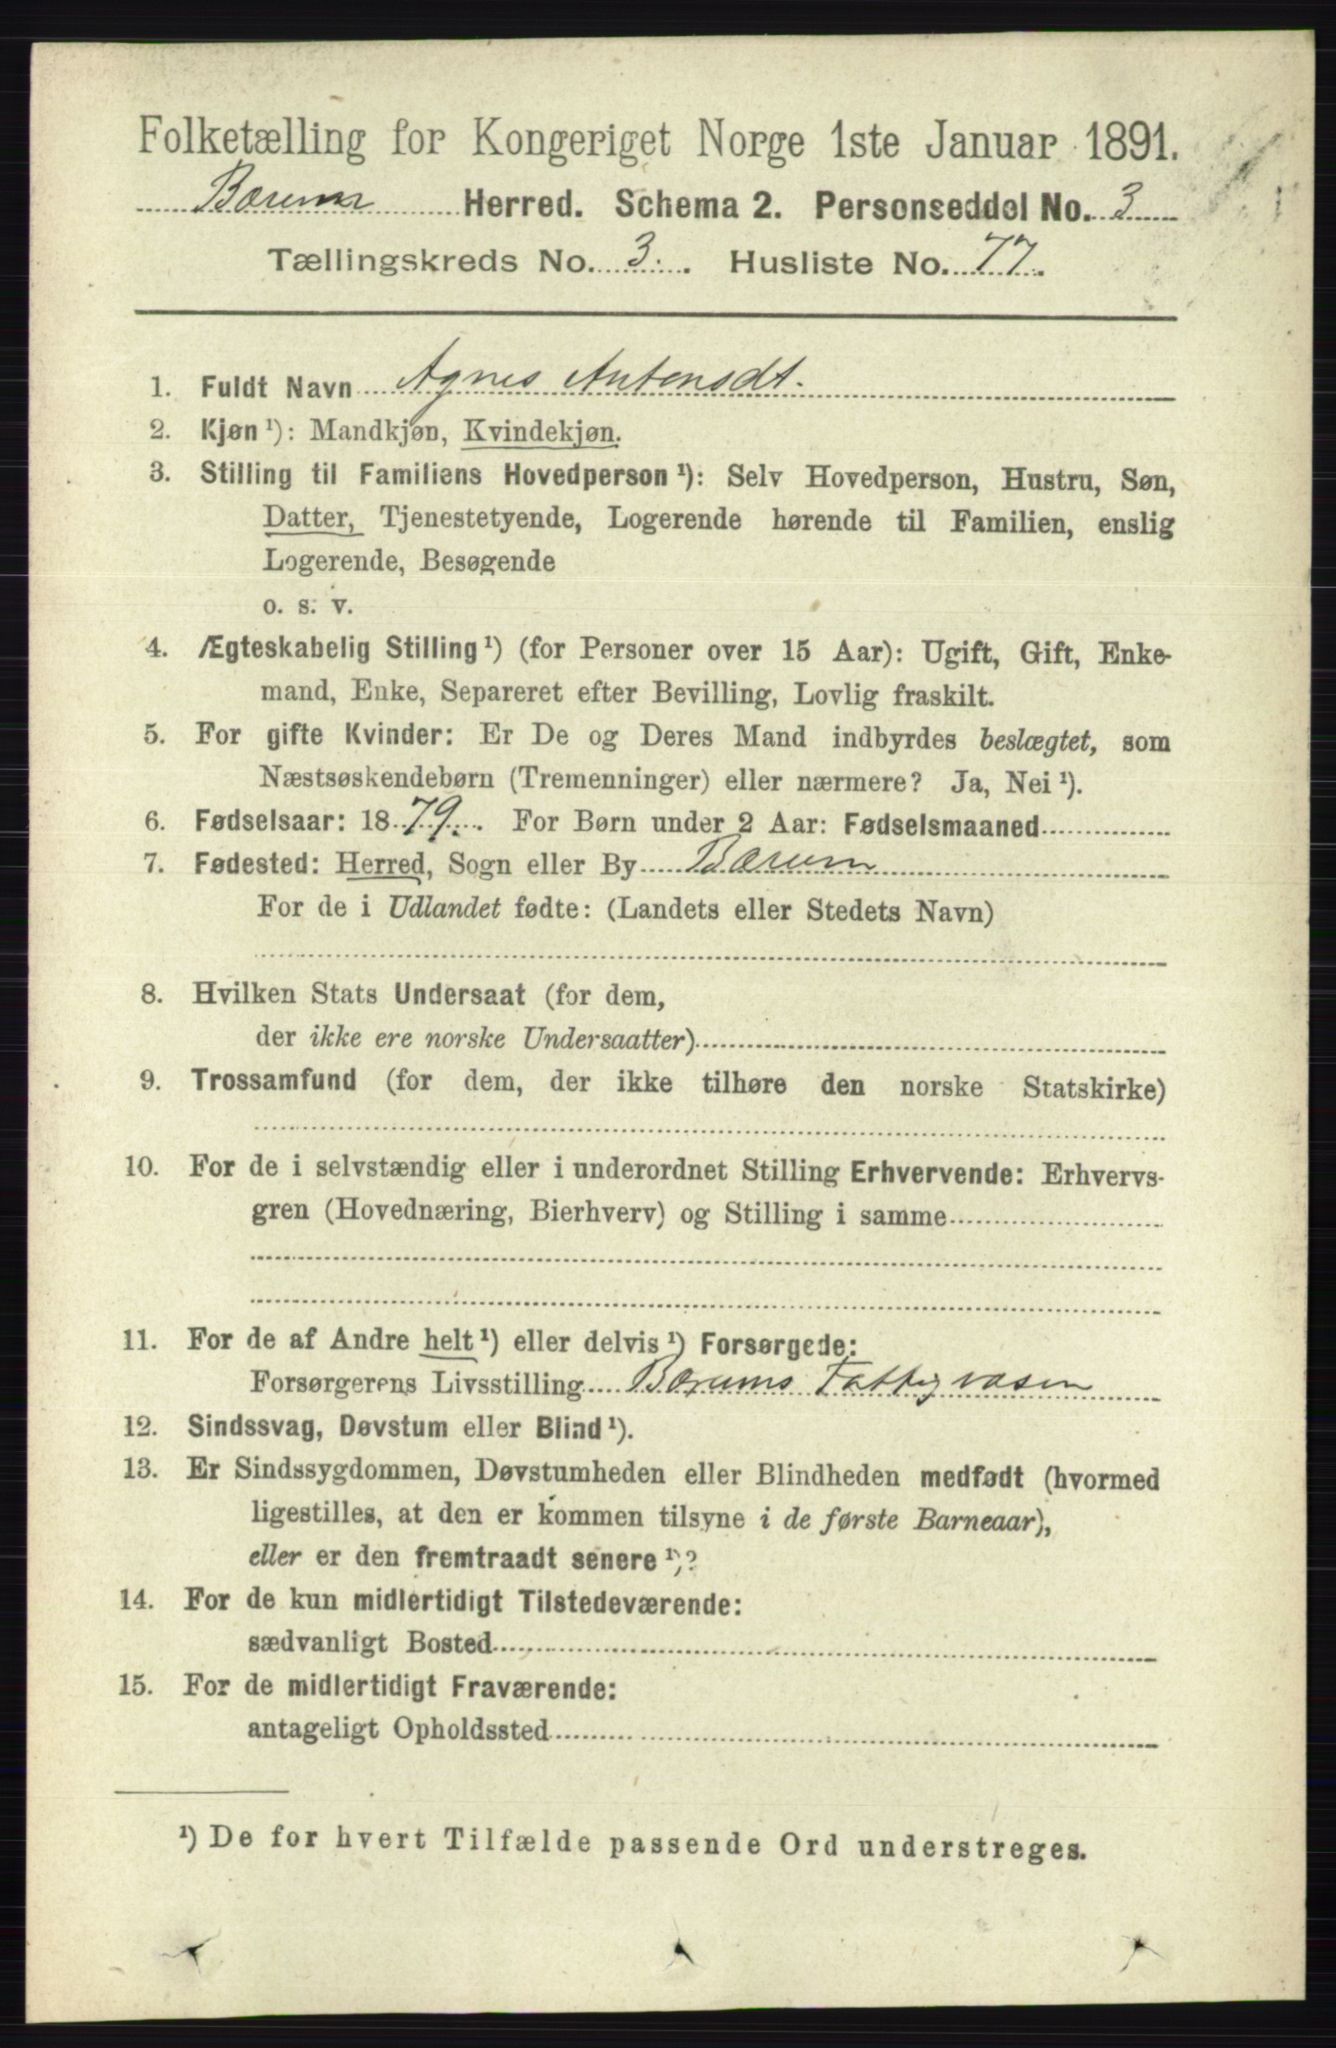 Folketælling for Kongeriget Norge 1ste Januar 1891.
Bærum Herred. Schema 2. Personseddel No. 3
Tællingskreds No. 3. Husliste No. 77.
1. Fuldt Navn Agnes Antonsdt.
2. Kjøn ¹): Mandkjøn, Kvindekjøn.
3. Stilling til Familiens Hovedperson ¹): Selv Hovedperson, Hustru, Søn,
Datter, Tjenestetyende, Logerende hørende til Familien, enslig
Logerende, Besøgende
o. s. v.
4. Ægteskabelig Stilling ¹) (for Personer over 15 Aar): Ugift, Gift, Enke-
mand, Enke, Separeret efter Bevilling, Lovlig fraskilt.
5. For gifte Kvinder: Er De og Deres Mand indbyrdes beslægtet, som
Næstsøskendebørn (Tremenninger) eller nærmere? Ja, Nei ¹).
6. Fødselsaar: 1879. For Børn under 2 Aar: Fødselsmaaned
7. Fødested: Herred, Sogn eller By Bærum
For de i Udlandet fødte: (Landets eller Stedets Navn)
8. Hvilken Stats Undersaat (for dem,
der ikke ere norske Undersaatter)
9. Trossamfund (for dem, der ikke tilhøre den norske Statskirke)
10. For de i selvstændig eller i underordnet Stilling Erhvervende: Erhvervs-
gren (Hovednæring, Bierhverv) og Stilling i samme
11. For de af Andre helt ¹) eller delvis ¹) Forsørgede:
Forsørgerens Livsstilling Bærums Fattigvæsen
12. Sindssvag, Døvstum eller Blind ¹).
13. Er Sindssygdommen, Døvstumheden eller Blindheden medfødt (hvormed
ligestilles, at den er kommen tilsyne i de første Barneaar),
eller er den fremtraadt senere ¹)?
14. For de kun midlertidigt Tilstedeværende:
sædvanligt Bosted
15. For de midlertidigt Fraværende:
antageligt Opholdssted
¹) De for hvert Tilfælde passende Ord understreges.